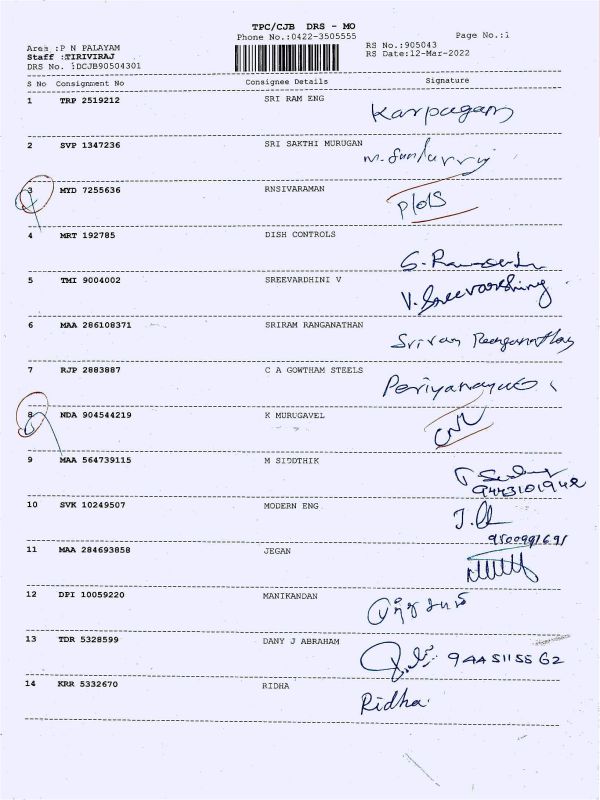 TPC/CJB DRS - MO
Phone No.:0422-3505555 Page No.:1
Area :P N PALAYAM RS No.:905043
Staff :TIRIVIRAJ RS Date:12-Mar-2022
DRS No. :DCJB90504301
S No Consignment No Consignee Details Signature
1 TRP 2519212 SRI RAM ENG Karpagam
2 SVP 1347236 SRI SAKTHI MURUGAN
3 MYD 7255636 RNSIVARAMAN
4 MRT 192785 DISH CONTROLS
5 TMI 9004002 SREEVARDHINI V V. Sreevarshiny
6 MAA 286108371 SRIRAM RANGANATHAN Sriram Ranganathan
7 RJP 2883887 C A GOWTHAM STEELS
8 NDA 904544219 K MURUGAVEL
9 MAA 564739115 M SIDDTHIK
9443101942
10 SVK 10249507 MODERN ENG
9500991691
11 MAA 284693858 JEGAN
12 DPI 10059220 MANIKANDAN
13 TDR 5328599 DANY J ABRAHAM 9445115562
14 KRR 5332670 RIDHA Ridha.